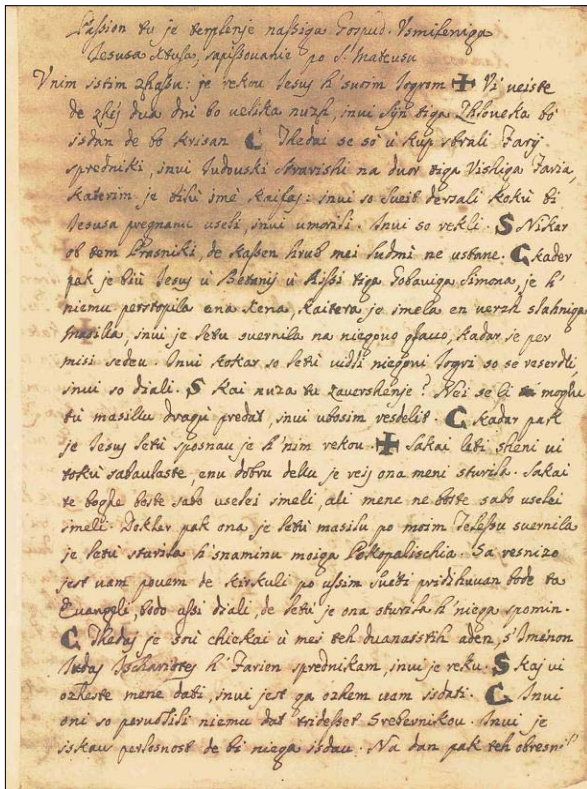 Passion tu je terplenje nashiga Gospud. Vsmileniga
Jesusa Xtusa, sapissovanie po S. Mateusu
Vnim istim zhassu: je rekou Jesus h'suoim Jogrom ✠ Vi veiste
de zhes dua dni bo velika nuzh, inui Syn tiga Zhloveka bo
isdan de bo krisan C Thedai se so u kup sbrali Farij
spredniki, inui Judouski starishi na duor tiga Vishiga Faria,
katerim je bilu ime Kaifas: inui so sueit dersali koku bi
Jesusa pregnanu useli, inui umorili. Inui so rekli. S Nikar
ob tem Prasniki, de kashen hrub mei ludmi ne ustane. C Kader
pak je biu Jesus u Betanij u hishi tiga Gobaviga Simona, je h'
niemu perstopila ena xena, kaitera je imela en verzh shlahniga
masilla, inui je letu suernila na niegovo glavo, kadar je per
misi sedeu. Inui kokar so letu vidli niegovi Jogri so se reserdli,
inui so djali. S Kai nuza tu zavershenje? Nei se li moglu
tu masillu dragu predat, inui ubosim resdelit. C Kadar pak
je Jesus letu sposnau je h'nim rekou. ✠ Sakai leti sheni vi
toku sabaulaste, enu dobru dellu je rej ona meni sturila. Sakai
te bogke boste sabo uselei imeli, ali mene ne boste sabo uselei
imeli. Dokler pak ona je letu masilu po moim Telessu suernila
je letu sturila h'snaminu moiga Pokopalischia. Sa resnizo
jest vam povem de kirskuli po ussim sueiti pridihuvan bode ta
Evangeli, bodo ussi djali, de letu je ona sturila h'niega spomin.
C Thedaj je sou chiekai u mes teh duanaistih aden, s'Imenon
Judas Ischariotes h' Farien sprednikam, inui je reku. S Kaj vi
ozheste mene dati, inui jest ga ozhem vam isdati. C Inui
oni so perustili niemu dat tridesset Srebernikou. Inui je
iskau perlosnost de bi niega isdau. Na dan pak teh obresni